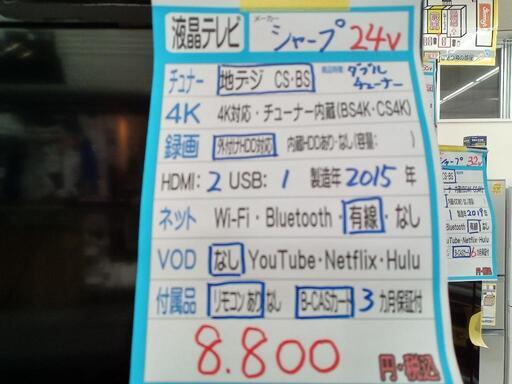 液晶テレビ メーカー シャープ 24v
チュナー 地デジ CS・BS ダブルチューナー
4K 4K対応・チューナー内蔵(BS4K・CS4K)
録画 外付けHDD対応 内蔵HDDあり・なし(容量: )
HDMI: 2 USB: 1 製造年 2015 年
ネット Wi-Fi・Bluetooth・有線・なし
VOD なし YouTube・Netflix・Hulu
付属品 リモコンあり なし B-CASカード 3 カ月保証付
8.800 円・税込
シャープ 32v
CS・BS
2019 年
Bluetooth 有線 なし
YouTube・Netflix・Hulu
B-CASカード 6